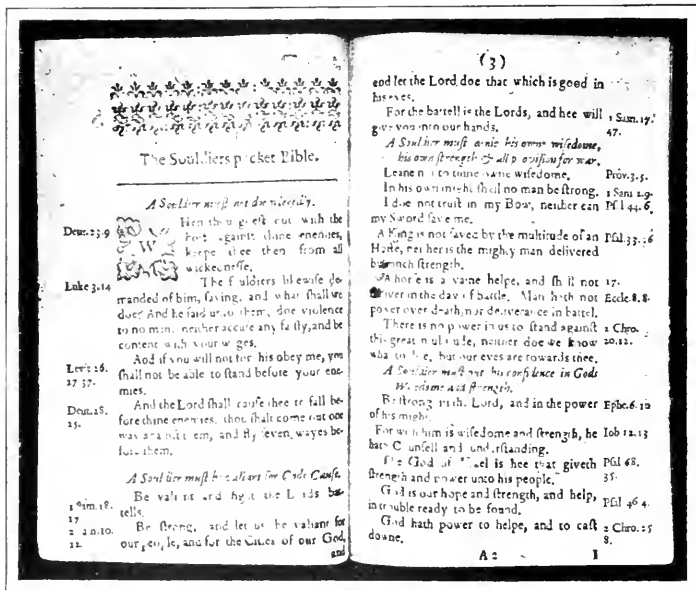 The Souldiers pocket Bible.
A Souldier must not doe wickedly.
Deut. 23.9
WHen thou goest out with the
host against thine enemies,
keepe thee then from all
wickednesse.
Luke 3.14
The souldiers likewise de-
manded of him, saying, and what shall we
doe? And he said unto them, doe violence
to no man, neither accuse any falsly, and be
content with your wages.
Levit. 26.
27 37.
And if you will not for his obey me, you
shall not be able to stand before your ene-
mies.
Deut. 28.
25.
And the Lord shall cause thee to fall be-
fore thine enemies, thou shalt come out one
way against them, and fly seven wayes be-
fore them.
A Souldier must be valiant for Gods Cause.
1 Sam. 18.
17
Be valiant and fight the Lords bat-
tells.
2 Sam. 10.
12.
Be strong, and let us be valiant for
our people, and for the Cities of our God,
and
(3)
end let the Lord doe that which is good in
his eyes.
For the battell is the Lords, and hee will
give you into our hands.
1 Sam. 17.
47.
A Souldier must denie his owne wisedome,
his own strength & all provision for war.
Leane not to thine owne wisedome.
Prov. 3.5.
In his own might shall no man be strong.
1 Sam 2.9.
I doe not trust in my Bow, neither can
my Sword save me.
Psal 44.6,
A King is not saved by the multitude of an
Horse, neither is the mighty man delivered
by much strength.
Psal. 33. 16
A horse is a vaine helpe, and shall not
17.
deliver in the day of battle. Man hath not
Eccle. 8.8.
power over death, nor deliverance in battel.
There is no power in us to stand against
this great multitude, neither doe we know
what to doe, but our eyes are towards thee.
2 Chro.
20.12.
A Souldier must put his confidence in Gods
Wisedome and strength.
Be strong in the Lord, and in the power
of his might.
Ephe. 6. 10
For with him is wisedome and strength, he
hath Counsell and understanding.
Iob 12.13
The God of Israel is hee that giveth
strength and power unto his people.
Psal 68.
35.
God is our hope and strength, and help,
in trouble ready to be found.
Psal 46 4.
God hath power to helpe, and to cast
downe.
2 Chro. 25
8.
A 2
I